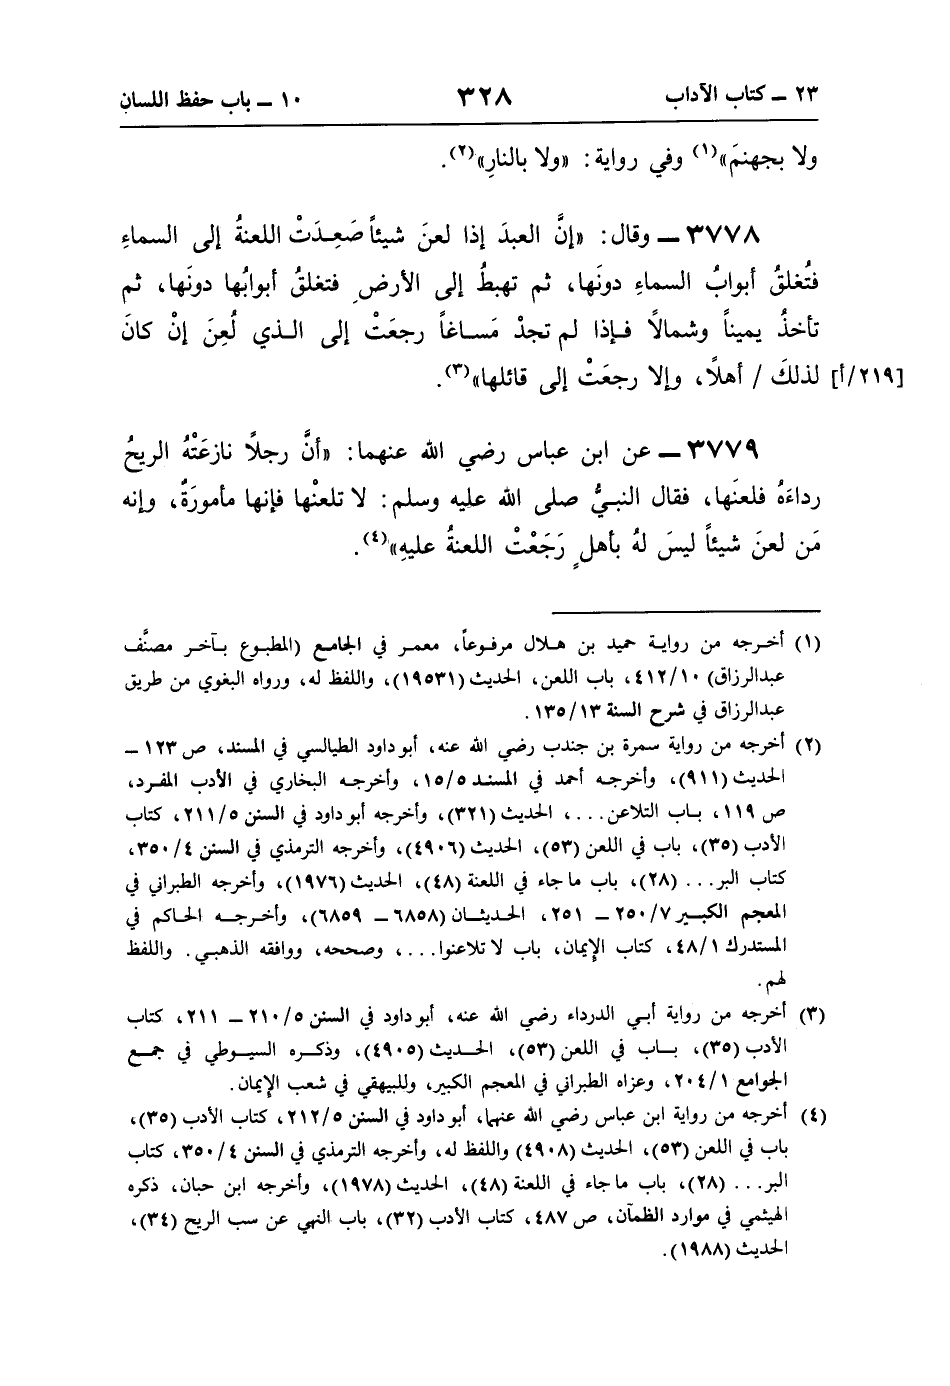 ٢٣ ـ كتاب الآداب ٣٢٨ ١٠ ـ باب حفظ اللسان
ولا بجهنمَ»(١) وفي رواية: «ولا بالنارِ»(٢).
٣٧٧٨ ـ وقال: «إنَّ العبدَ إذا لعنَ شيئاً صَعِدَتْ اللعنةُ إلى السماءِ
فتُغلقُ أبوابُ السماءِ دونَها، ثم تهبطُ إلى الأرضِ فتغلقُ أبوابُها دونَها، ثم
تأخذُ يميناً وشمالاً فإذا لم تجدْ مَساغاً رجعَتْ إلى الذي لُعِنَ إنْ كانَ
[٢١٩/أ] لذلكَ / أهلاً، وإلا رجعَتْ إلى قائلها»(٣).
٣٧٧٩ ـ عن ابن عباس رضي الله عنهما: «أنَّ رجلاً نازعَتْهُ الريحُ
رداءَهُ فلعنَها، فقال النبيُّ صلى الله عليه وسلم: لا تلعنْها فإنها مأمورَةٌ، وإنه
مَن لعنَ شيئاً ليسَ لهُ بأهلٍ رَجَعْتْ اللعنةُ عليهِ»(٤).
(١) أخرجه من رواية حميد بن هلال مرفوعاً، معمر في الجامع (المطبوع بآخر مصنَّف
عبدالرزاق) ٤١٢/١٠، باب اللعن، الحديث (١٩٥٣١)، واللفظ له، ورواه البغوي من طريق
عبدالرزاق في شرح السنة ١٣٥/١٣.
(٢) أخرجه من رواية سمرة بن جندب رضي الله عنه، أبو داود الطيالسي في المسند، ص ١٢٣ ـ
الحديث (٩١١)، وأخرجه أحمد في المسند ١٥/٥، وأخرجه البخاري في الأدب المفرد،
ص ١١٩، باب التلاعن...، الحديث (٣٢١)، وأخرجه أبو داود في السنن ٢١١/٥، كتاب
الأدب (٣٥)، باب في اللعن (٥٣)، الحديث (٤٩٠٦)، وأخرجه الترمذي في السنن ٣٥٠/٤،
كتاب البر... (٢٨)، باب ما جاء في اللعنة (٤٨)، الحديث (١٩٧٦)، وأخرجه الطبراني في
المعجم الكبير ٢٥٠/٧ ـ ٢٥١، الحديثان (٦٨٥٨ ـ ٦٨٥٩)، وأخرجه الحاكم في
المستدرك ٤٨/١، كتاب الإيمان، باب لا تلاعنوا...، وصححه، ووافقه الذهبي. واللفظ
لهم.
(٣) أخرجه من رواية أبي الدرداء رضي الله عنه، أبو داود في السنن ٢١٠/٥ ـ ٢١١، كتاب
الأدب (٣٥)، باب في اللعن (٥٣)، الحديث (٤٩٠٥)، وذكره السيوطي في جمع
الجوامع ٢٠٤/١، وعزاه الطبراني في المعجم الكبير، وللبيهقي في شعب الإيمان.
(٤) أخرجه من رواية ابن عباس رضي الله عنهما، أبو داود في السنن ٢١٢/٥، كتاب الأدب (٣٥)،
باب في اللعن (٥٣)، الحديث (٤٩٠٨) واللفظ له، وأخرجه الترمذي في السنن ٣٥٠/٤، كتاب
البر... (٢٨)، باب ما جاء في اللعنة (٤٨)، الحديث (١٩٧٨)، وأخرجه ابن حبان، ذكره
الهيثمي في موارد الظمآن، ص ٤٨٧، كتاب الأدب (٣٢)، باب النهي عن سب الريح (٣٤)،
الحديث (١٩٨٨).